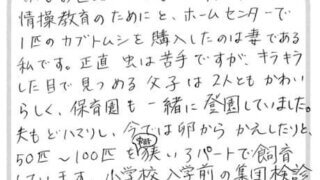 情操教育のためにと、ホームセンターで
1匹のカブトムシを購入したのは妻である
私です。正直 虫は苦手ですが、キラキラ
した目で見つめる父子は2人ともかわい
らしく、保育園も一緒に登園していました。
夫もどハマりし、今では卵からかえしたりと、
50匹〜100匹を狭いアパートで飼育
しています。小学校入学前の集団検診